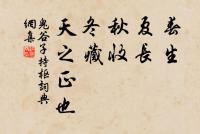 春生
夏長
秋收
冬藏
天之正也
鬼谷子持樞詞典
網集